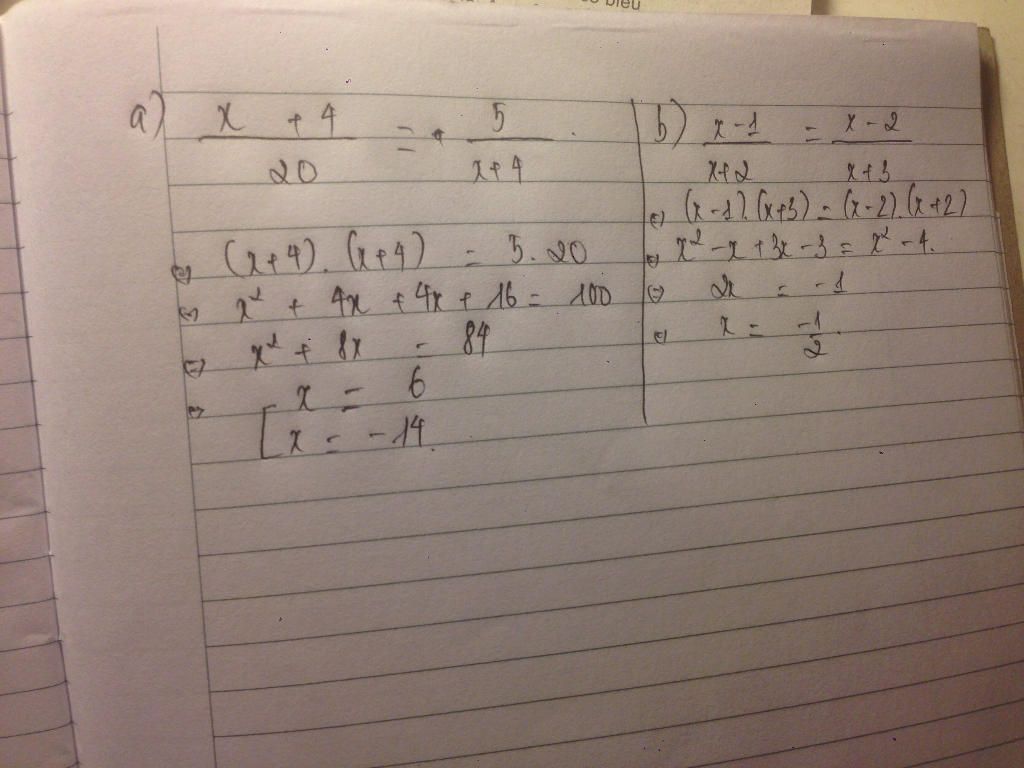 bleu
a) x + 4 / 20 = 5 / x+4
⇔ (x+4).(x+4) = 5.20
⇔ x² + 4x + 4x + 16 = 100
⇔ x² + 8x = 84
⇔ [ x = 6
x = -14.
b) x-1 / x+2 = x-2 / x+3
⇔ (x-1).(x+3) = (x-2).(x+2)
⇔ x² - x + 3x - 3 = x² - 4.
⇔ 2x = -1
⇔ x = -1 / 2.